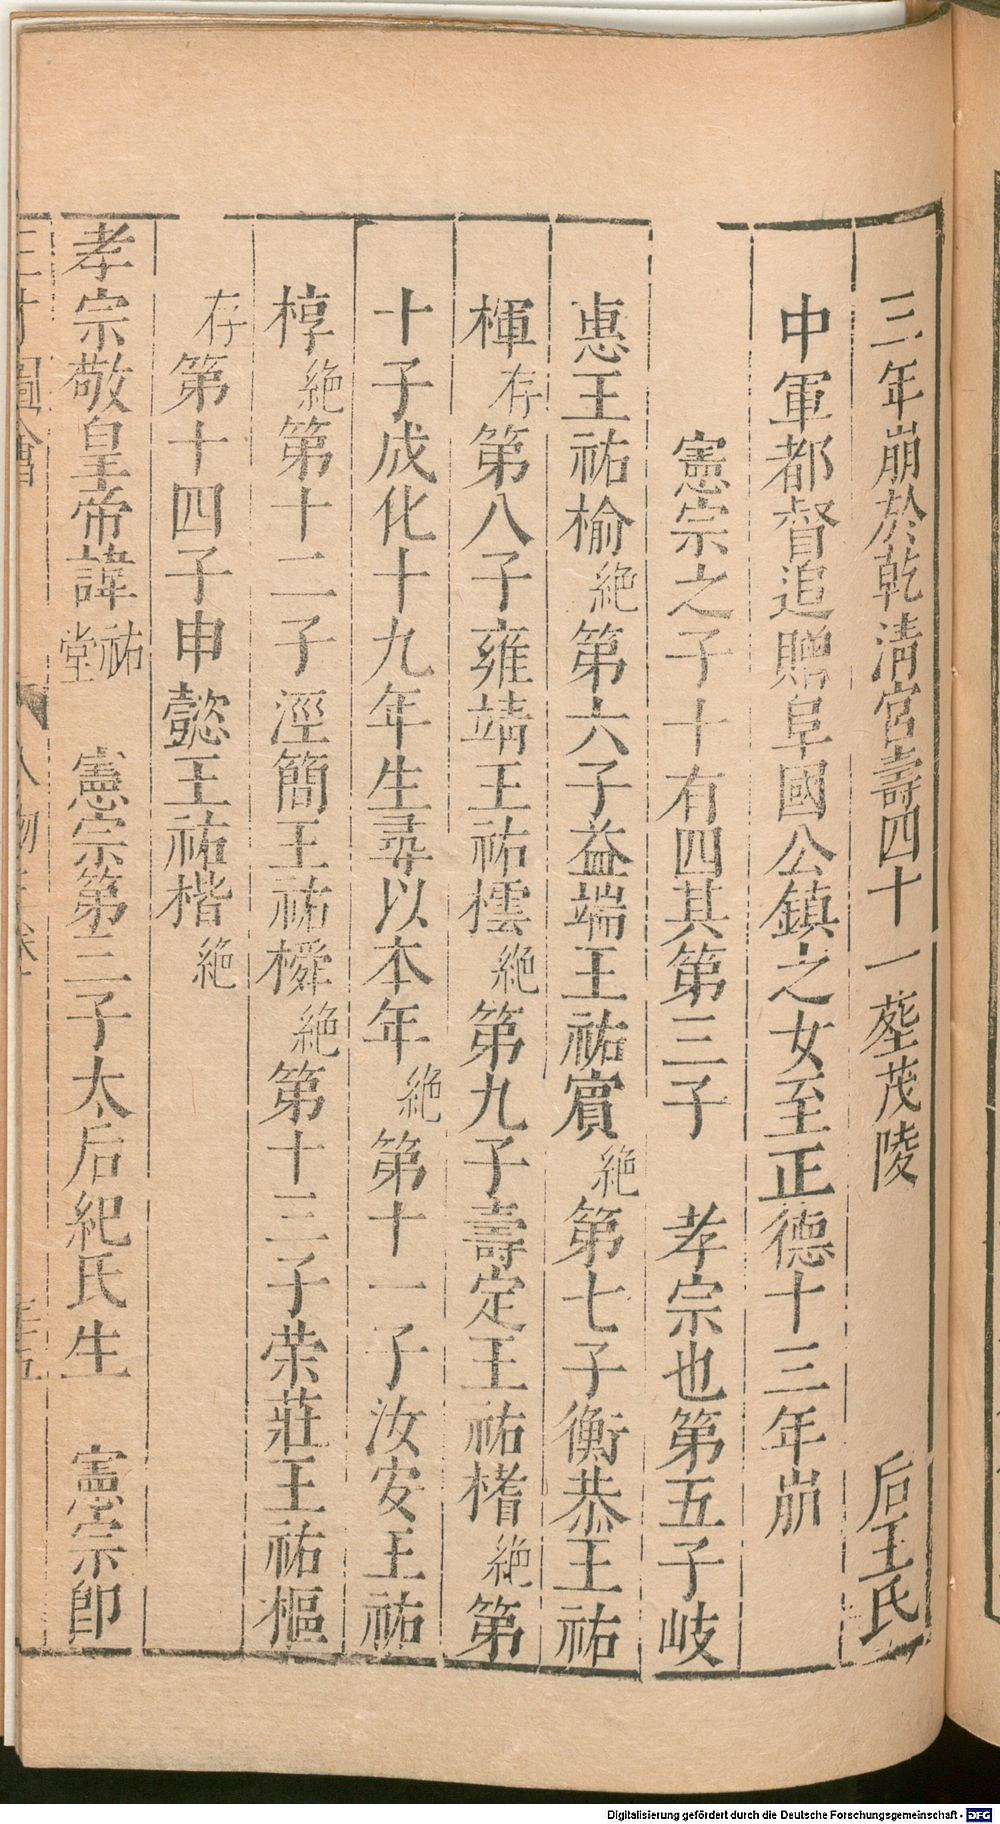 三年崩於乾清宮壽四十一塟茂陵 后王氏
中軍都督追贈阜國公鎮之女至正德十三年崩
憲宗之子十有四其第三子 孝宗也第五子岐
惠王祐棆絶第六子益端王祐賓絶第七子衡恭王祐
楎存第八子雍靖王祐橒絶第九子壽定王祐榰絶第
十子成化十九年生尋以本年絶第十一子汝安王祐
椁絶第十二子涇簡王祐橓絶第十三子荣莊王祐樞
存第十四子申懿王祐楷絶
孝宗敬皇帝諱祐堂 憲宗第三子太后紀氏生 憲宗即
三才圖會 人物三卷 三五
Digitalisierung gefördert durch die Deutsche Forschungsgemeinschaft - DFG